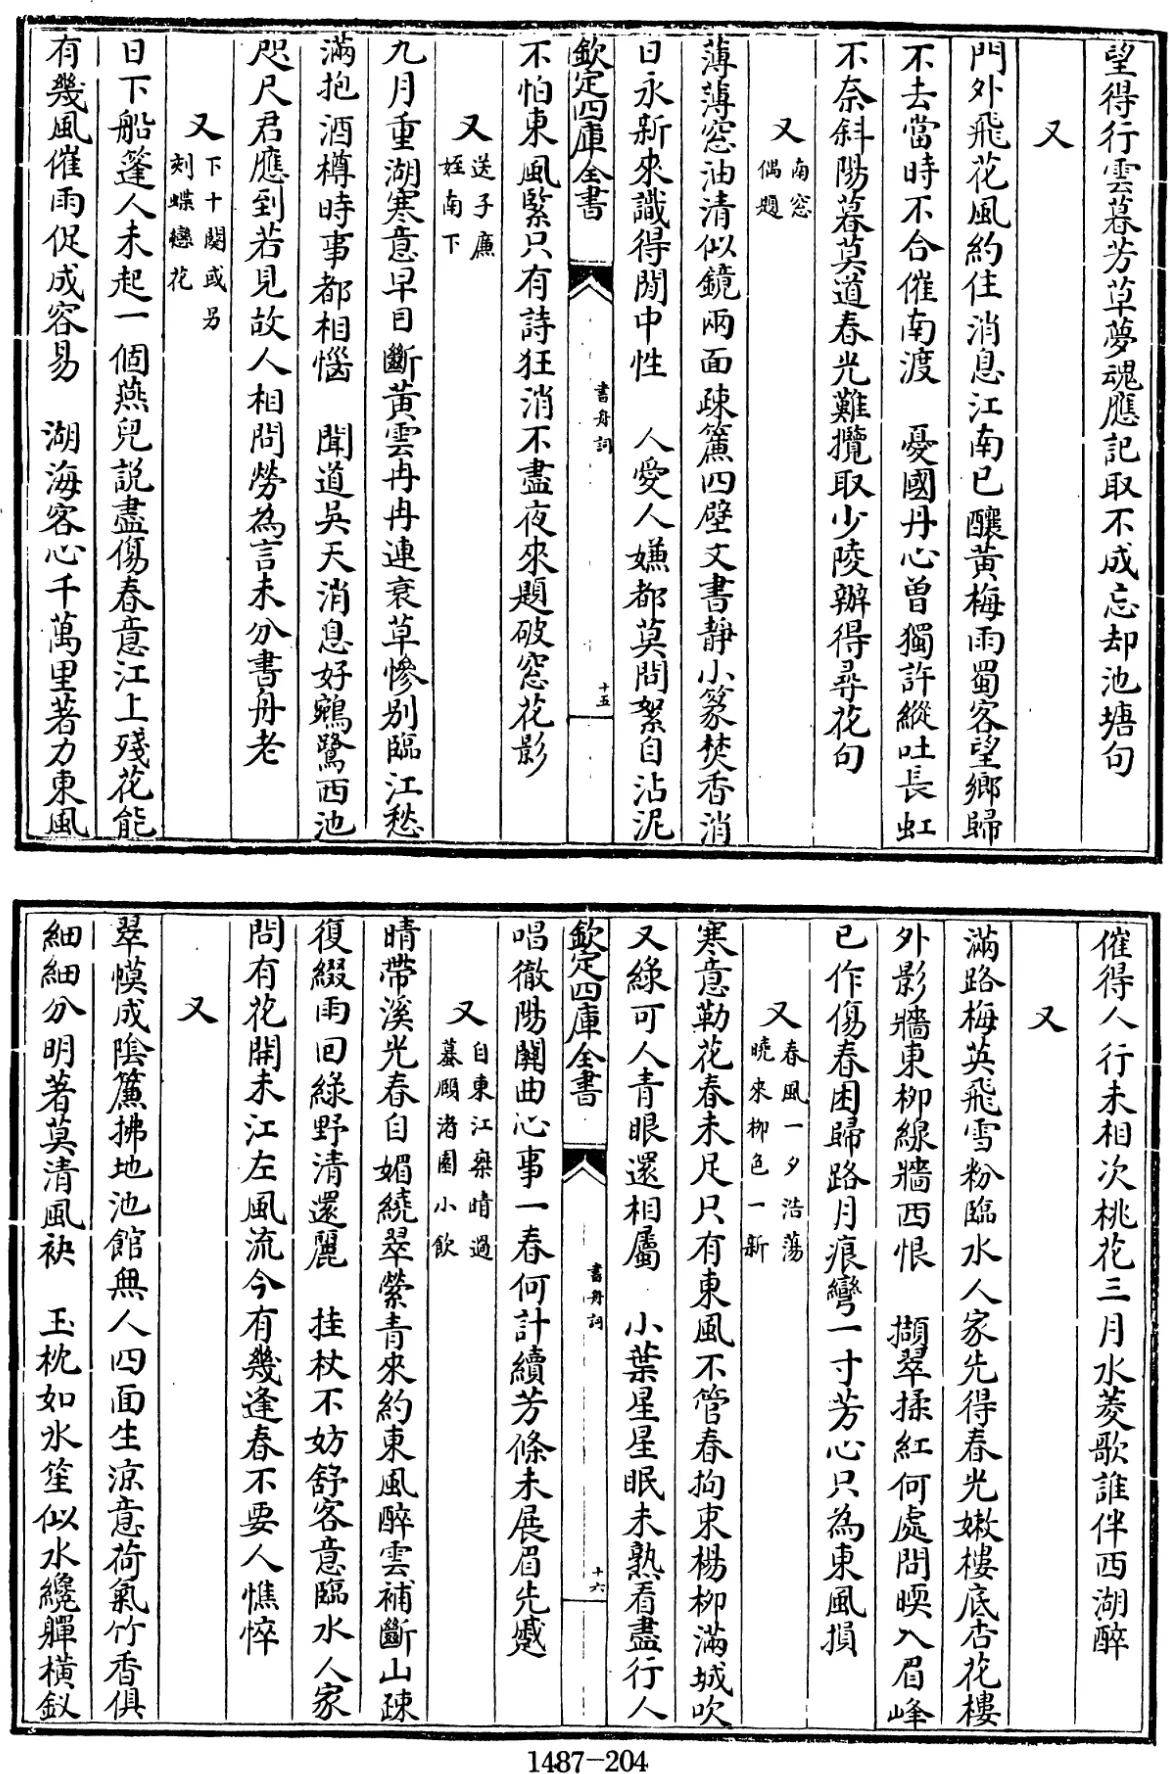 望得行雲暮芳草夢魂應記取不成忘却池塘句
又
門外飛花風約住消息江南已釀黃梅雨蜀客望鄉歸
不去當時不合催南渡　憂國丹心曾獨許縱吐長虹
不奈斜陽暮莫道春光難攬取少陵辦得尋花句
又南窓
偶題
薄薄窓油清似鏡兩面疎簾四壁文書靜小篆焚香消
日永新來識得閒中性　人愛人嫌都莫問絮自沾泥
欽定四庫全書
書舟詞
十五
不怕東風緊只有詩狂消不盡夜來題破窓花影
又送子廉
姪南下
九月重湖寒意早目斷黃雲冉冉連衰草慘別臨江愁
滿抱酒樽時事都相惱　聞道吳天消息好鵷鷺西池
咫尺君應到若見故人相問勞為言未分書舟老
又下十闋或另
刻蝶戀花
日下船篷人未起一個燕兒説盡傷春意江上殘花能
有幾風催雨促成容易　湖海客心千萬里著力東風
催得人行未相次桃花三月水菱歌誰伴西湖醉
又
滿路梅英飛雪粉臨水人家先得春光嫩樓底杏花樓
外影牆東柳線牆西恨　擷翠揉紅何處問暖入眉峰
已作傷春困歸路月痕彎一寸芳心只為東風損
又春風一夕浩蕩
曉來柳色一新
寒意勒花春未足只有東風不管春拘束楊柳滿城吹
又綠可人青眼還相屬　小葉星星眠未熟看盡行人
欽定四庫全書
書舟詞
十六
唱徹陽關曲心事一春何計續芳條未展眉先蹙
又自東江乘晴過
蟇頤渚園小飲
晴帶溪光春自媚繞翠縈青來約東風醉雲補斷山疎
復綴雨回綠野清還麗　挂杖不妨舒客意臨水人家
問有花開未江左風流今有幾逢春不要人憔悴
又
翠幙成陰簾拂地池館無人四面生涼意荷氣竹香俱
細細分明著莫清風袂　玉枕如氷笙似水纔嚲橫釵
1487-204